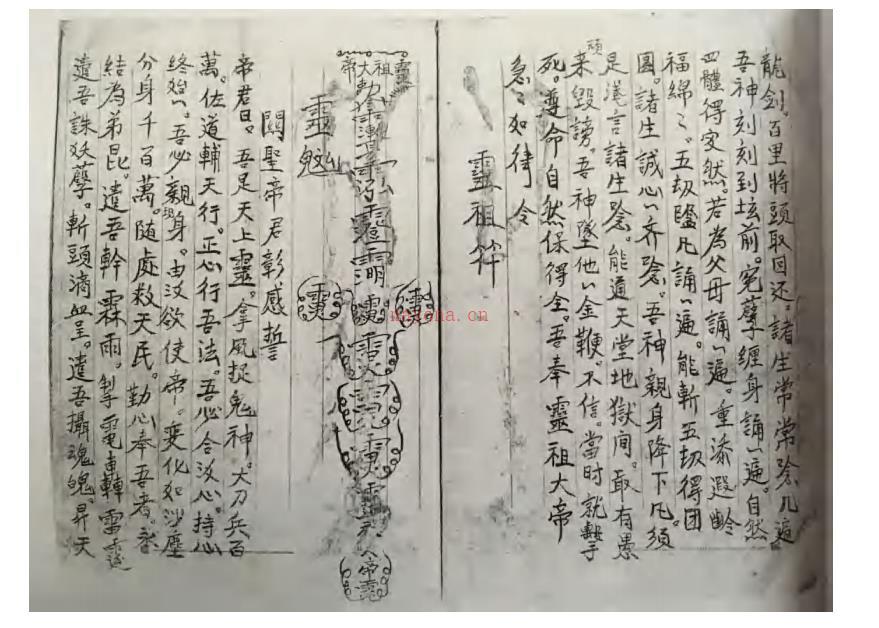 龍劍。百里將頭取回还。諸生常常唸几遍
吾神刻刻到坛前。冤孽缠身誦一遍。自然
四體得安然。若為父母誦一遍。重添遐齡
福綿々。五劫臨凡誦一遍。能斬五劫得团
圆。諸生誠心齐唸。吾神親身降下凡。须
是浅言諸生唸。能道天堂地獄間。敢有愚
頑
来毀謗。吾神墜他一金鞭。不信。當时就
死。尊命自然保得全。吾奉靈祖大帝
急々如律令
靈祖符
靈祖大帝
關聖帝君彰感誓
帝君曰。吾是天上靈。拿風捉鬼神。大刀兵百
萬。佐道輔天行。正心行吾法。吾必合汝心。持心
終始一。吾必親身。由汝欲使帝。变化如沙塵
分身千百萬。随處救天民。勤心奉吾者。
結為弟昆。遣吾幹霖雨。掣電轟雷
遣吾誅妖孽。斬頭滴血呈。遣吾攝魂魄。昇天
nayona.cn